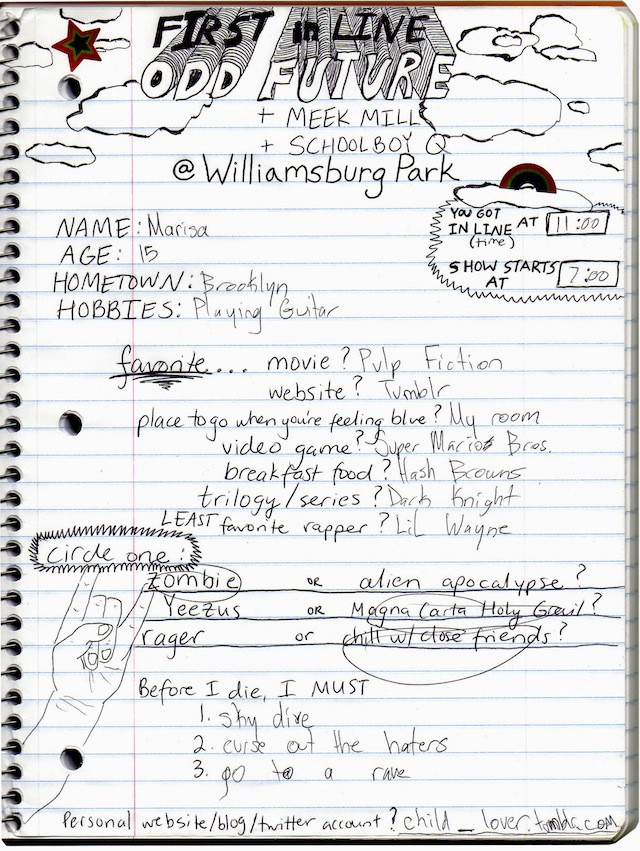 FIRST in LINE
ODD FUTURE
+ MEEK MILL
+ SCHOOLBOY Q
@ Williamsburg Park
YOU GOT IN LINE AT (time) 11:00
SHOW STARTS AT 7:00
NAME: Marisa
AGE: 15
HOMETOWN: Brooklyn
HOBBIES: Playing Guitar
favorite.... movie? Pulp Fiction
website? Tumblr
place to go when you're feeling blue? My room
video game? Super Mario Bros.
breakfast food? Hash Browns
trilogy/series? Dark Knight
LEAST favorite rapper? Lil Wayne
circle one:
zombie or alien apocalypse?
Yeezus or Magna Carta Holy Grail?
rager or chill w/ close friends?
Before I die, I MUST
1. sky dive
2. curse out the haters
3. go to a rave
Personal website/blog/twitter account? child_lover.tumblr.com